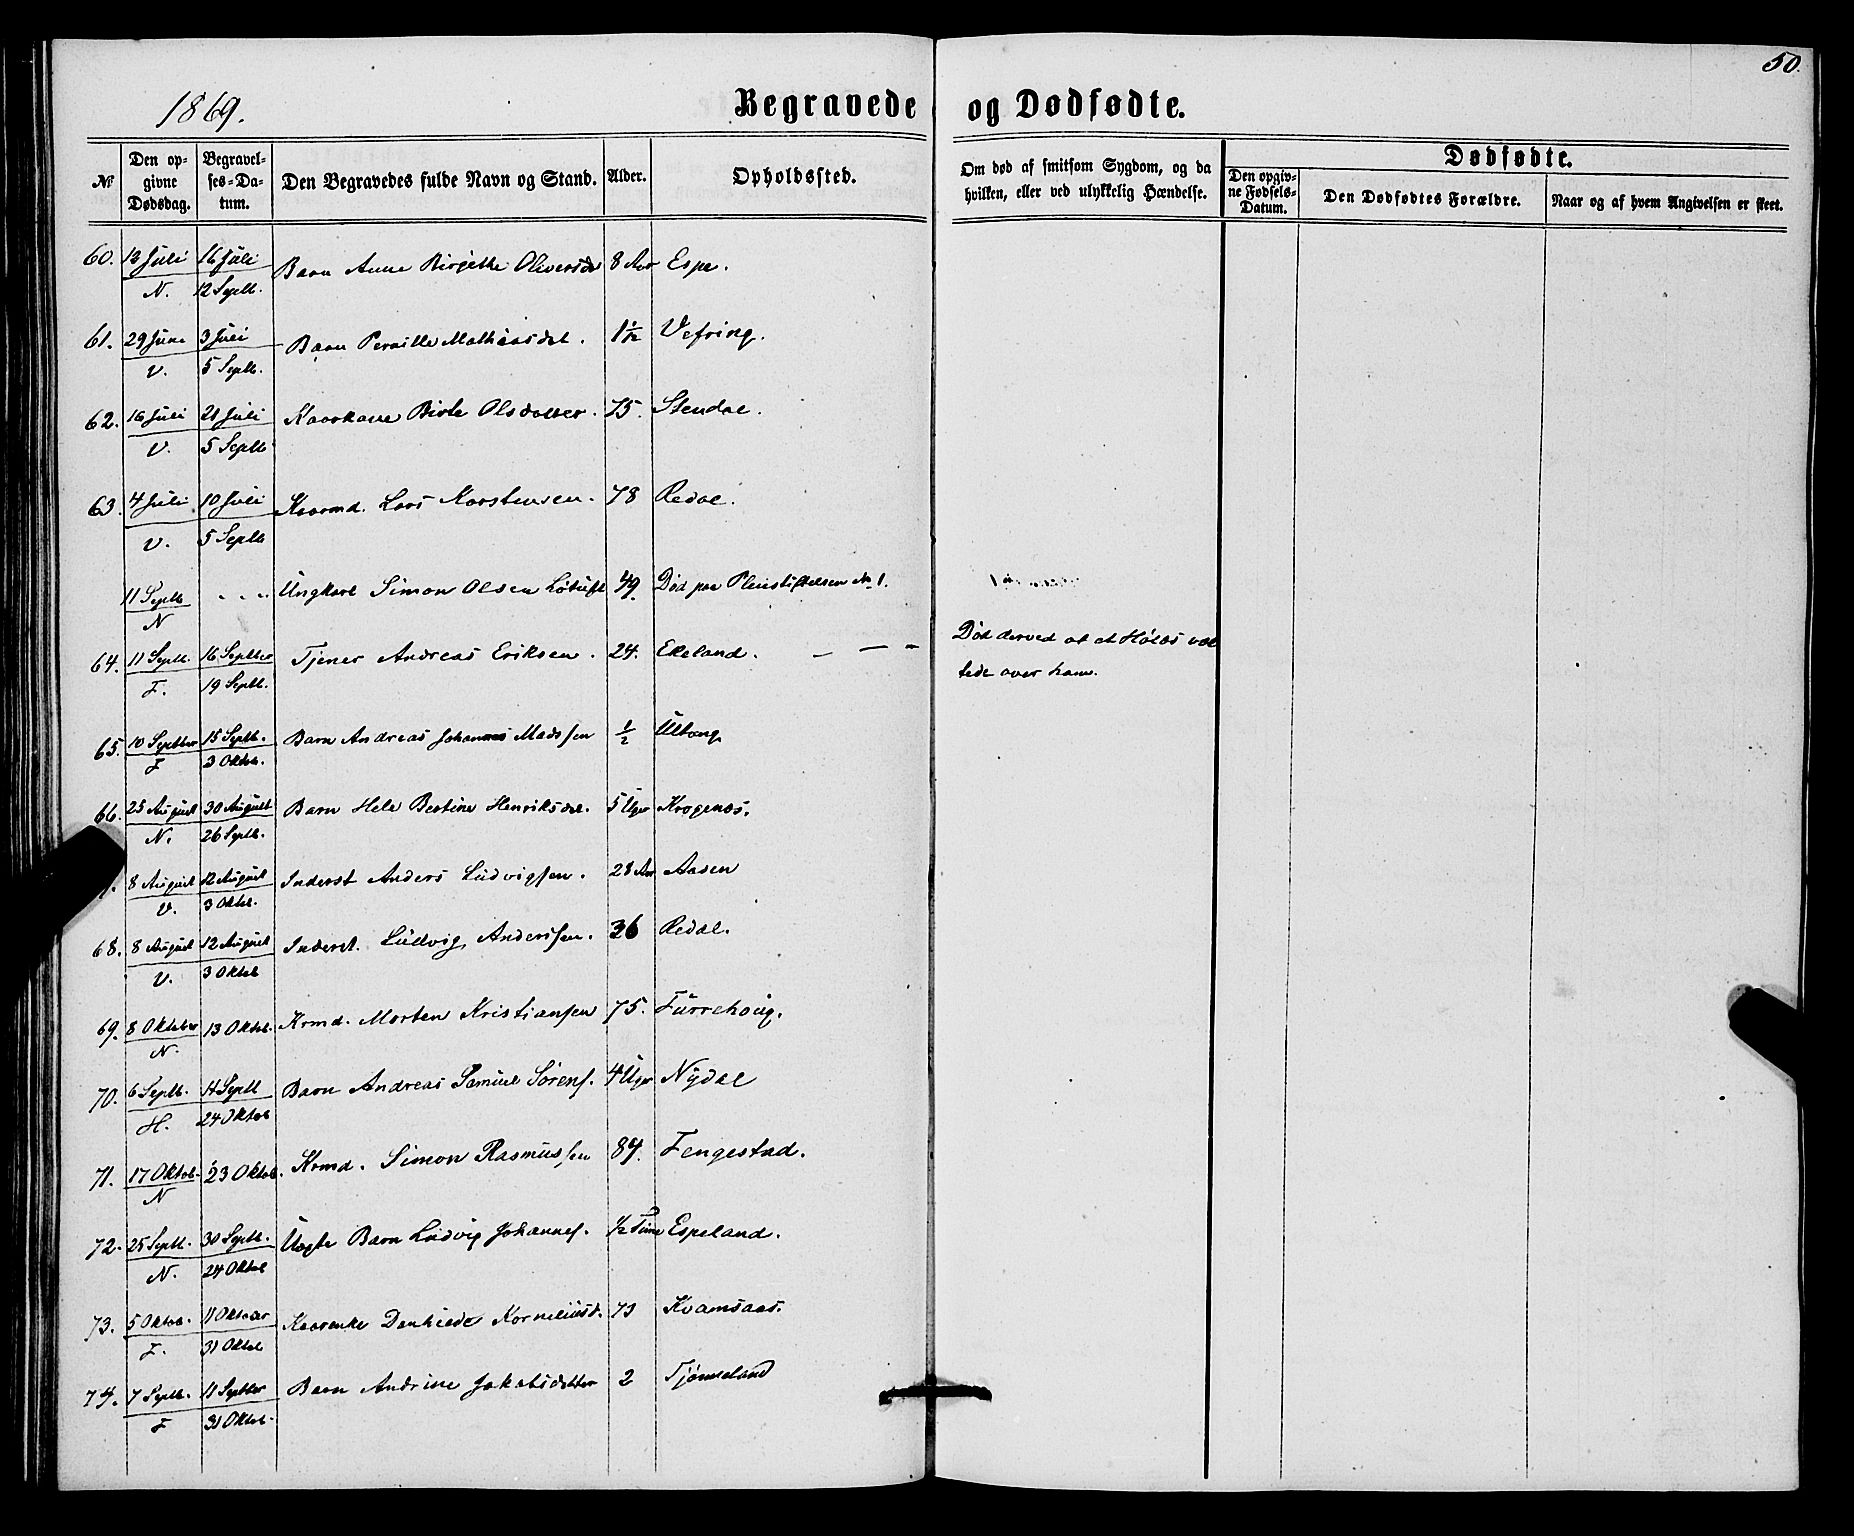 50.
1869.
Begravede og Dødfødte.
№
Den opgivne Dødsdag.
Begravelses-Datum.
Den Begravedes fulde Navn og Stand.
Alder.
Opholdssted.
Om død af smitsom Sygdom, og da hvilken, eller ved ulykkelig Hændelse.
Dødfødte.
Den opgivne Fødsels-Datum.
Den Dødfødtes Forældre.
Naar og af hvem Angivelsen er skeet.
60. 13 Juli 16 Juli Barn Anne Birgitte Oliversdr 8 Aar Espe.
N. 12 Septb.
61. 29 Juni 3 Juli Barn Pernille Mathiasdat. 1½ Vefring.
V. 5 Septb.
62. 16 Juli 21 Juli Kaarkone Birte Olsdatter. 75. Stendal.
V. 5 Septb
63. 4 Juli 10 Juli Kaarmd. Lars Karstensen. 78 Redal.
V. 5 Septb
11 Septb - - - Ungkarl Simon Olsen 49. Død paa Pleiestiftelsen No 1.
N
64. 11 Septb. 16 Septber Tjener Andreas Eriksen. 24. Ekeland. - - - Død derved at et Hølæs væl
F. 19 Septb. tede over ham.
65. 10 Septber 15 Septb. Barn Andreas Johannes Madssen ½ Ultang
F 3 Oktob.
66. 25 August 30 August Barn Hele Bertine Henriksdat. 5 Uger Krogenæs.
N. 26 Septb.
8 August 12 August Inderst Anders Ludvigsen. 28 Aar Aasen
V. 3 Oktob.
68. 8 August 12 August Inderst. Ludvig Anderssen. 36 Redal.
V. 3 Oktob
69. 8 Oktober 13 Oktob. Krmd. Morten Kristiansen 75. Furrehoug.
N.
70. 6 Septb. 11 Septb Barn Andreas Samuel Sørens. 4 Uger Nydal
H. 24 Oktob
71. 17 Oktob. 23 Oktob. Krmd. Simon Rasmussen 84. Fengestad.
N
72. 25 Septb. 30 Septb. Uægte Barn Ludvig Johannes. ½ Time Espeland.
N. 24 Oktob
73. 5 Oktob. 11 Oktober Kaarenke Korneliusd. 73 Kvamsaas.
F. 31 Oktob
74. 7 Septb. 11 Septber Barn Andrine Jakobsdatter 2 Tjønneland
F 31 Oktob.